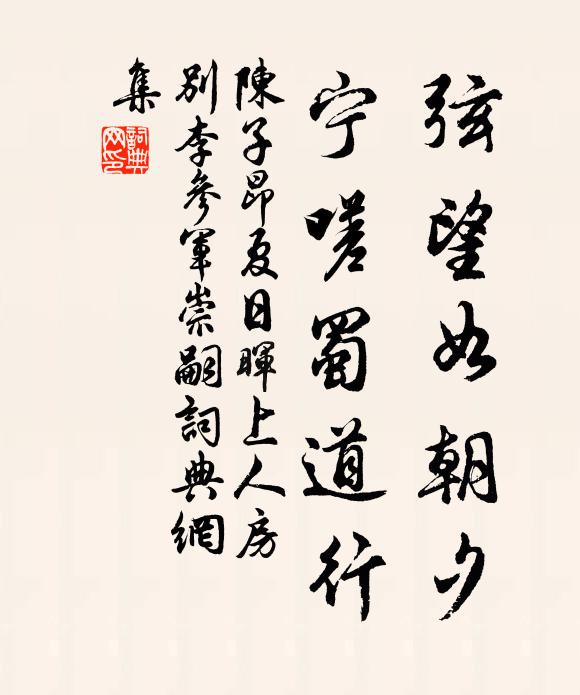 弦望如朝夕
宁嗟蜀道行
陳子昂夏日暉上人房
別李參軍崇嗣詞典網
集
詞典网印